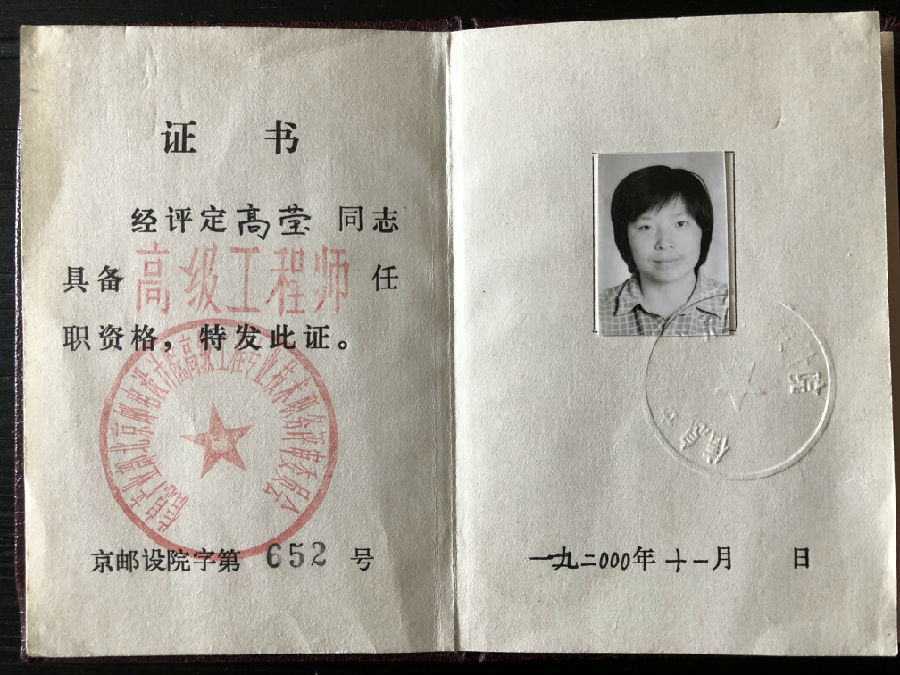 证 书
经评定高莹同志
具备高级工程师任
职资格，特发此证。
京邮设院字第 652 号
一九二000年十一月 日